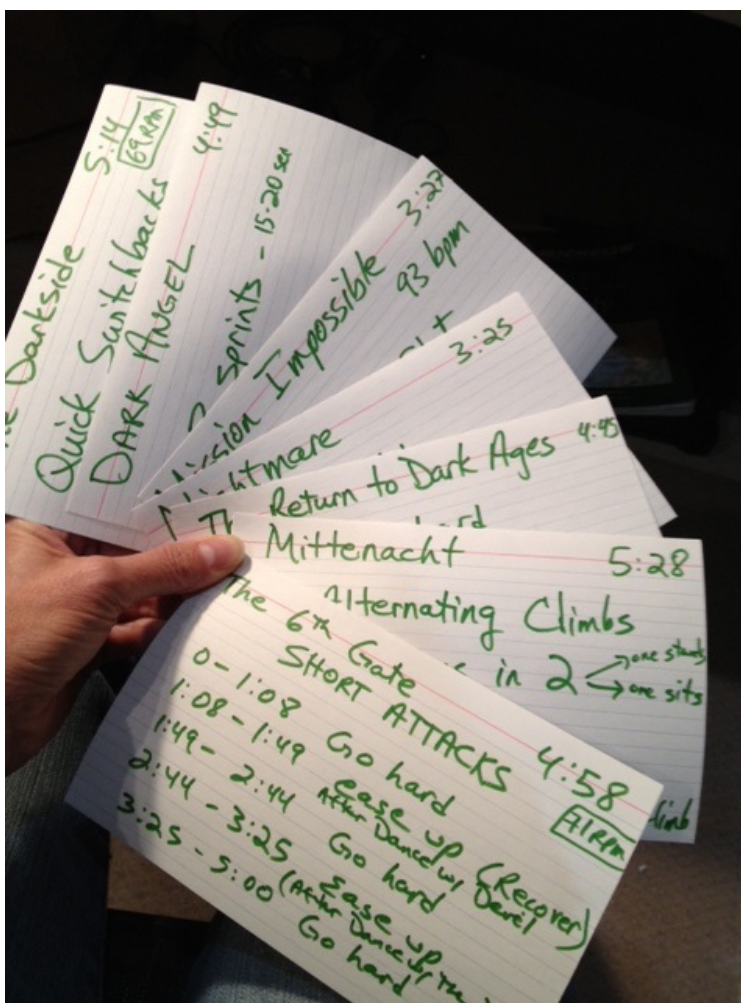 Darkside 5:14
69 RPM
Quick Switchbacks
DARK ANGEL 4:49
sprints - 15-20 sec
Mission Impossible 3:27
93 bpm
Nightmare 3:25
Return to Dark Ages 4:45
Mittenacht 5:28
Alternating Climbs
in 2 one stands
one sits
The 6th Gate 4:58
SHORT ATTACKS 71 RPM
0-1:08 Go hard
1:08-1:49 Ease up (Recover)
After Dance w/ Devil
1:49-2:44 Go hard
2:44-3:25 Ease up
(After Dance w/ The
3:25-5:00 Go hard